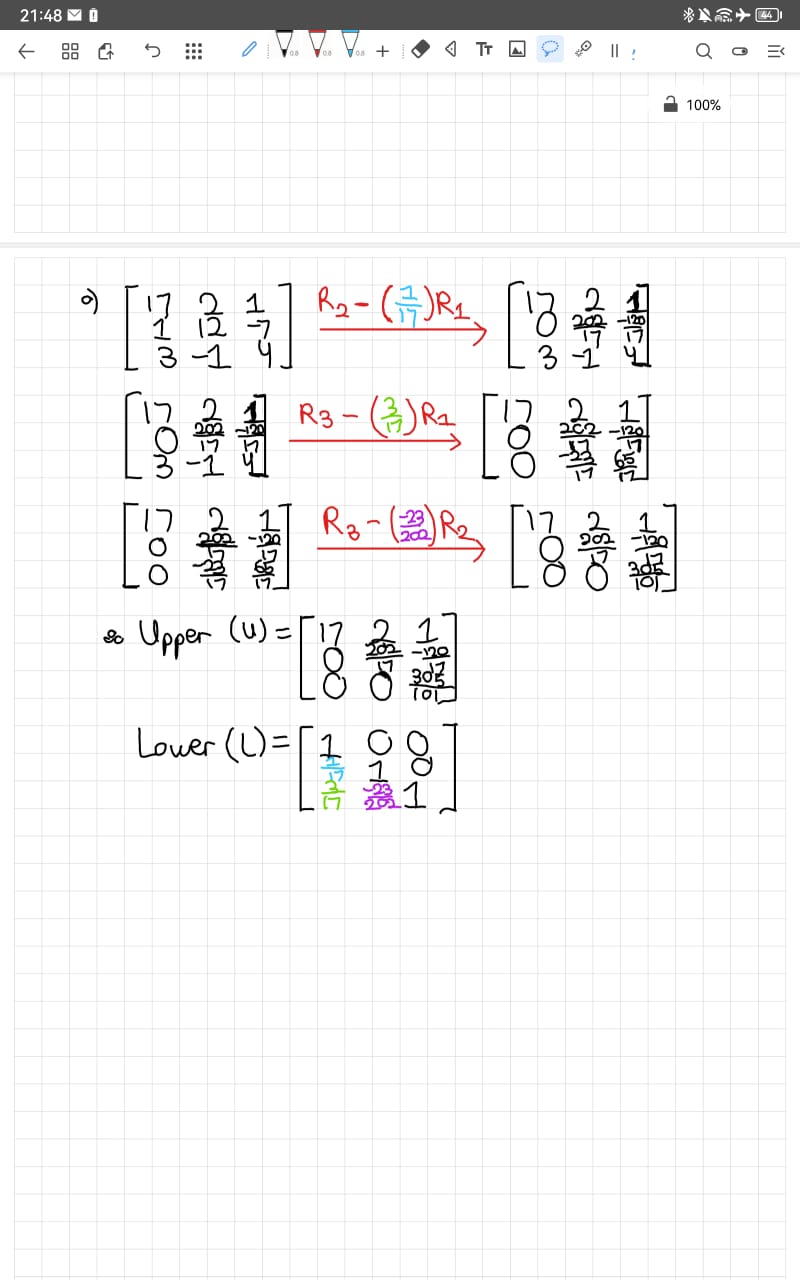 21:48 44
0.8 0.8 0.8 + Tт
100%
a) [17 2 1; 1 12 -7; 3 -1 4] R₂ - (1/17)R₁ → [17 2 1; 0 202/17 -120/17; 3 -1 4]
[17 2 1; 0 202/17 -120/17; 3 -1 4] R₃ - (3/17)R₁ → [17 2 1; 0 202/17 -120/17; 0 -23/17 65/17]
[17 2 1; 0 202/17 -120/17; 0 -23/17 65/17] R₃ - (-23/202)R₂ → [17 2 1; 0 202/17 -120/17; 0 0 305/101]
∴ Upper (U) = [17 2 1; 0 202/17 -120/17; 0 0 305/101]
Lower (L) = [1 0 0; 1/17 1 0; 3/17 -23/202 1]